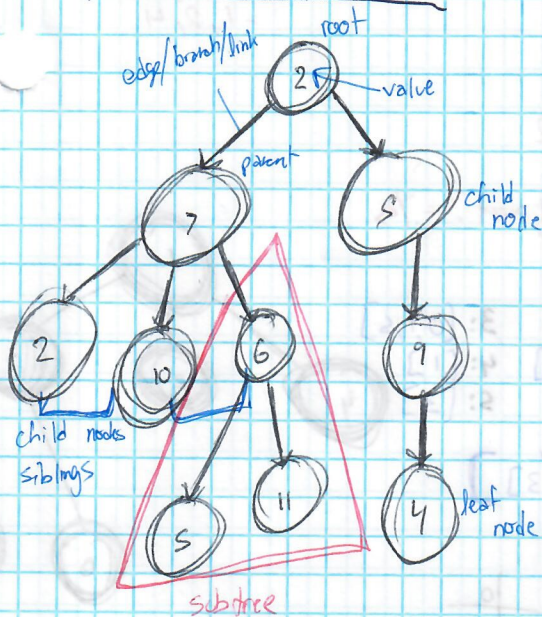 root
edge/branch/link
2
value
parent
7
5
child
node
2
10
6
9
child nodes
siblings
5
11
4
leaf
node
subtree